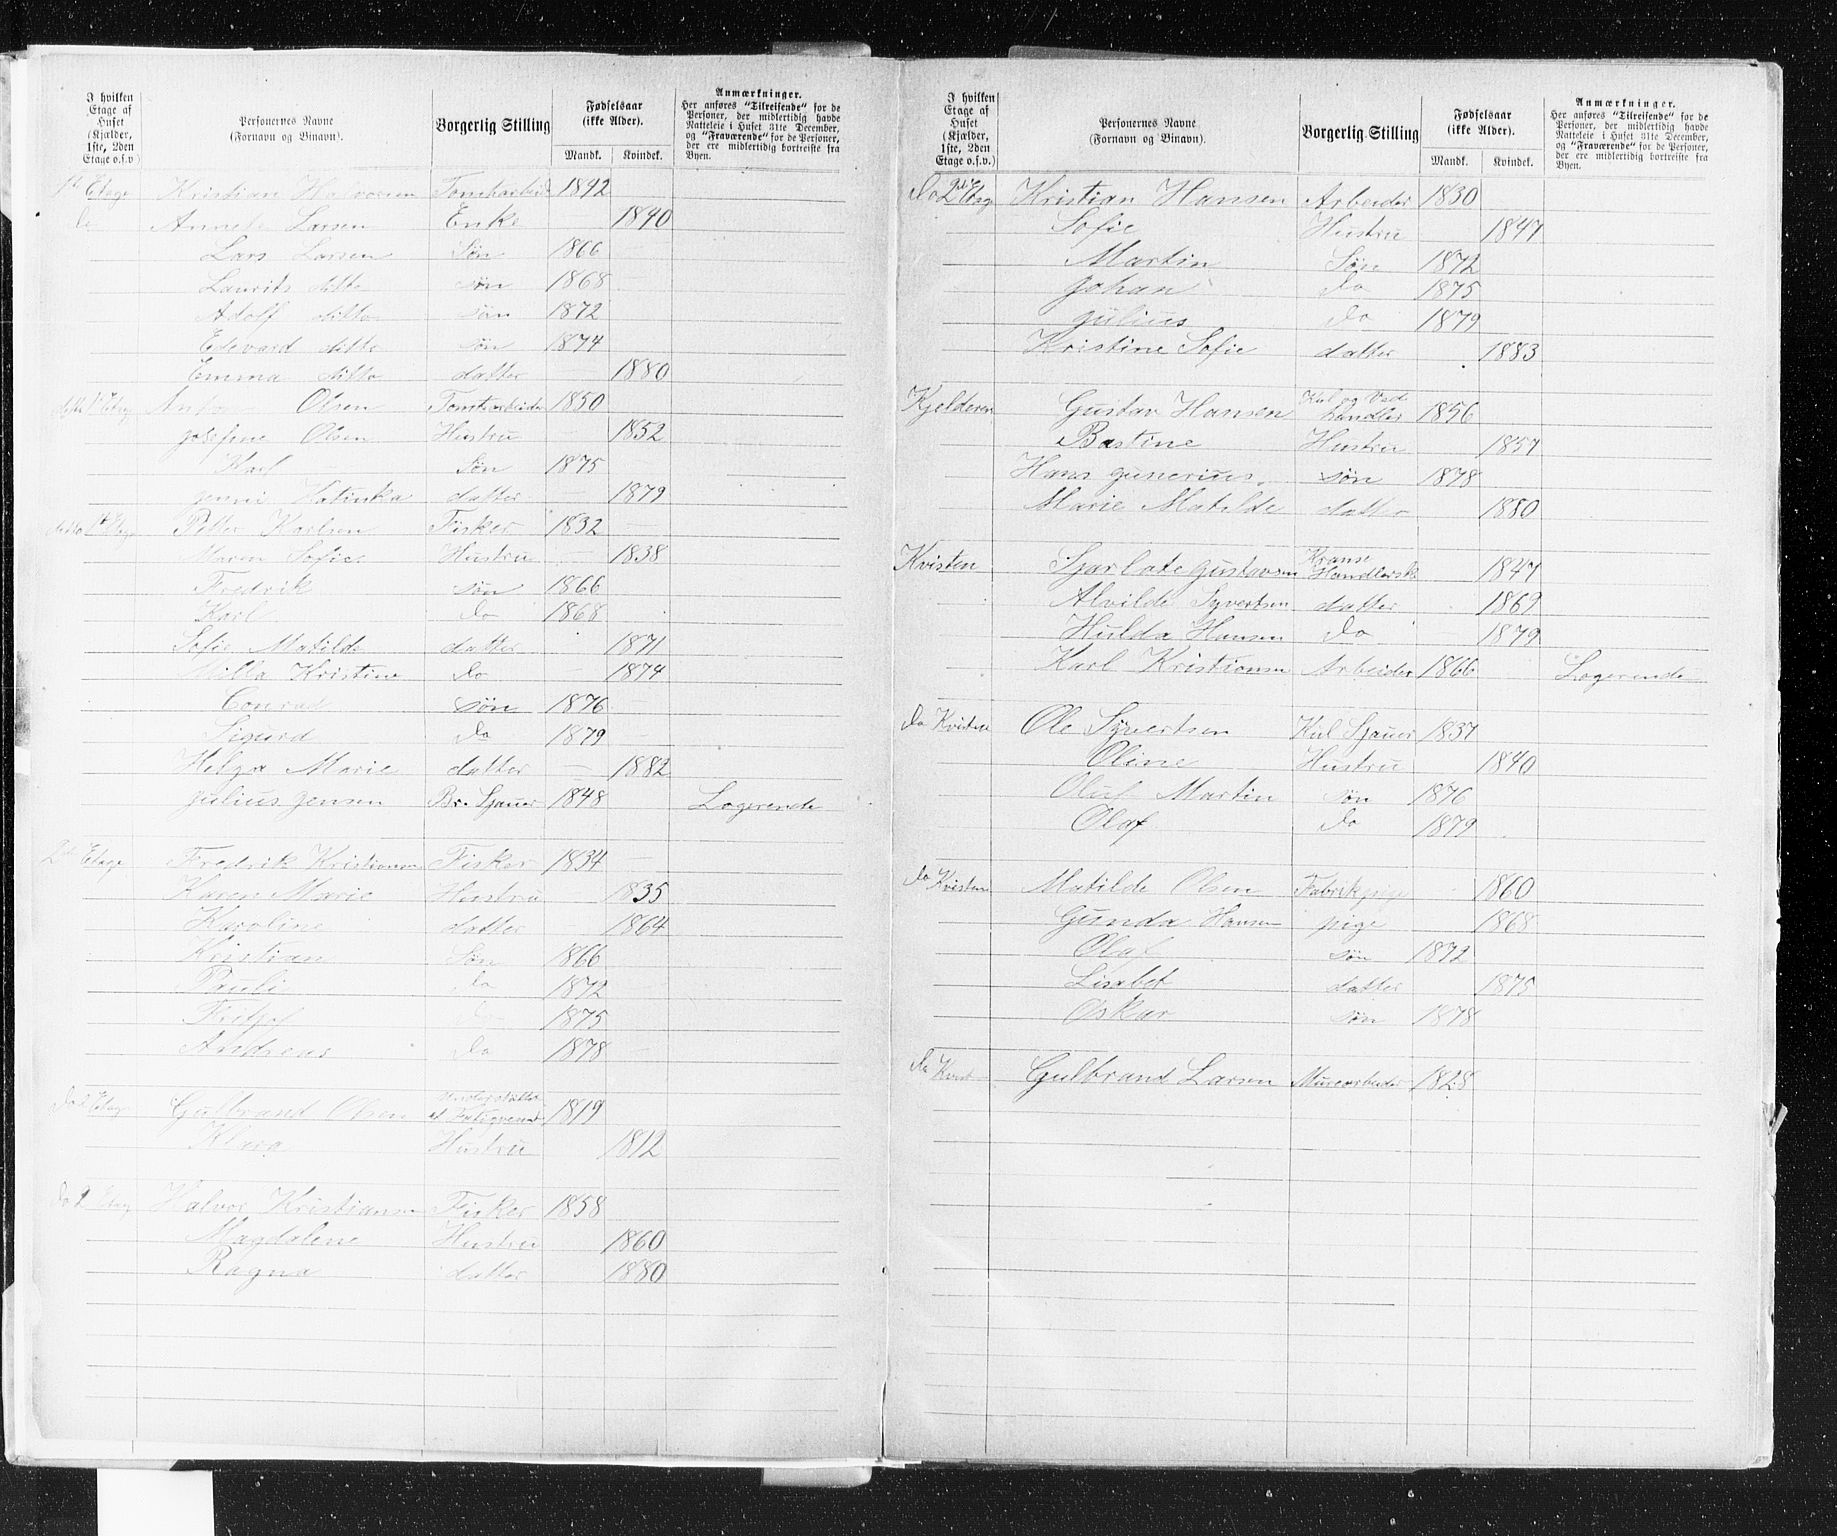 I hvilken Etage af Huset (Kjælder, 1ste, 2den Etage o.s.v)
Personernes Navne (Fornavn og Binavn).
Borgerlig Stilling
Fødselsaar (ikke Alder).
Mandk. Kvindek.
Anmærkninger.
Her anføres "Tilreisende" for de Personer, der midlertidig havde Natteleie i Huset 31te December, og "Fraværende" for de Personer, der ere midlertidig bortreiste fra Byen.
Etage Kristian 1842
Larsen Enke 1840
Lars Larsen Søn 1866
Laurits ditto søn 1868
Adolf ditto søn 1872
Edevard ditto søn 1874
Emma ditto datter 1880
Olsen Tomtearbeider 1850
Josefine Olsen Hustru 1852
Karl Søn 1875
Jenni Katinka datter 1879
Petter Karlsen Fisker 1832
Maren Sofie Hustru 1838
Fredrik søn 1866
Karl Do 1868
Sofie Matilde datter 1871
Milla Kristine Do 1874
Conrad søn 1876
Sigurd Do 1879
Helga Marie datter 1882
Julius Jensen Br. Sjauer 1848 Logerende
Etage Fredrik Kristiansen Fisker 1834
Karen Marie Hustru 1835
Karoline datter 1864
Kristian Søn 1866
Pauli Do 1872
1875
Andreas Do 1878
Gulbrand Olsen 1819
Klara Hustru 1812
Do 2 Etag Halvor Kristiansen Fisker 1858
Magdalene Hustru 1860
Ragna datter 1880
I hvilken Etage af Huset (Kjælder, 1ste, 2den Etage o.s.v.)
Personernes Navne (Fornavn og Binavn).
Borgerlig Stilling
Fødselsaar (ikke Alder).
Mandk. Kvindek.
Anmærkninger.
Her anføres "Tilreisende" for de Personer, der midlertidig havde Natteleie i Huset 31te December, og "Fraværende" for de Personer, der ere midlertidig bortreiste fra Byen.
Do Etag Kristian Hansen Arbeider 1830
Sofie Hustru 1847
Martin Søn 1872
Johan Do 1875
Julius Do 1879
Kristine Sofie datter 1883
Kjelderen Gustav Hansen Kul og Ved handler 1856
Bastine Hustru 1857
Hans Gunerius søn 1878
Marie Matilde datter 1880
Kvisten Sjarlote Gustavsen Kranse Handlersk 1847
Alvilde Syvertsen datter 1869
Hulda Hansen Do 1879
Karl Kristiansen Arbeider 1866 Logerende
Do Kvisten Ole Syvertsen Kul Sjauer 1837
Oline Hustru 1840
Oluf Martin søn 1876
Olaf Do 1879
Do Kvisten Matilde Olsen Fabrikpige 1860
Gunda Hansen pige 1868
Olaf søn 1872
Lisabet datter 1875
Oskar søn 1878
Do Kvist Gulbrand Larsen Murearbeider 1828